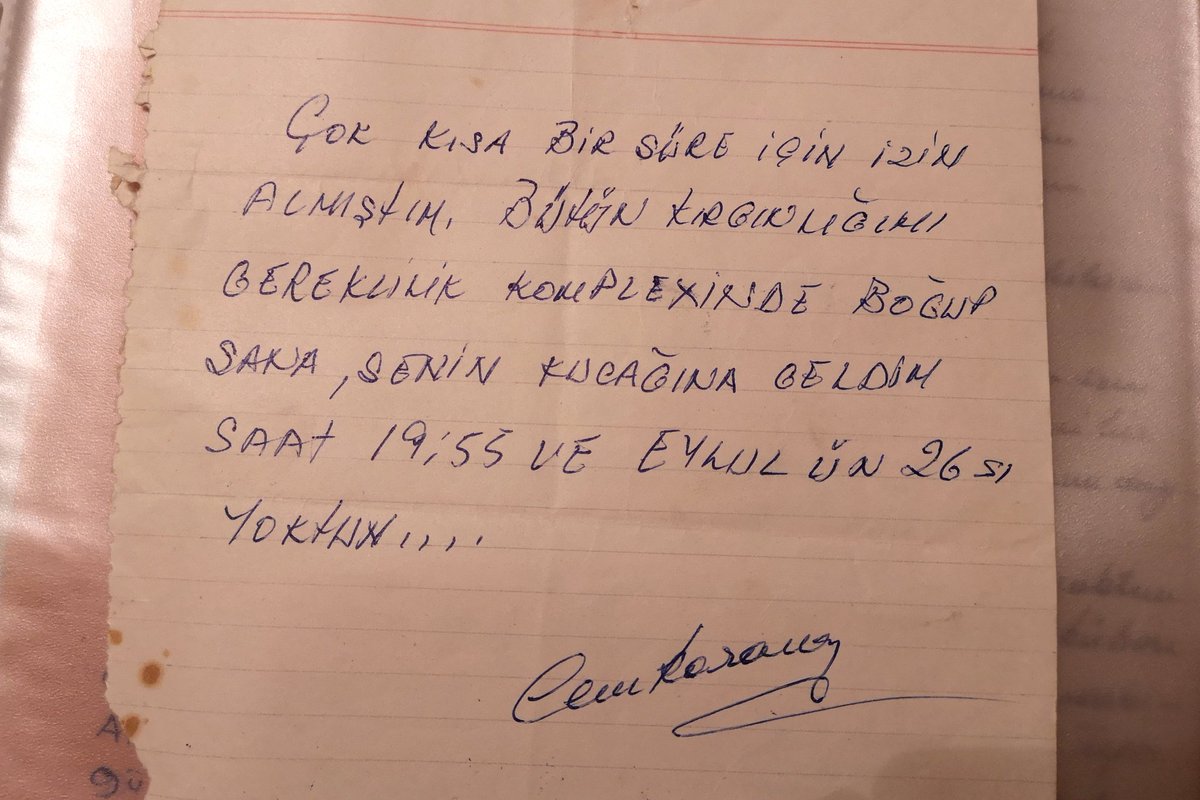 ÇOK KISA BİR SÜRE İÇİN İZİN
ALMIŞTIM. BÜTÜN KIRGINLIĞIMI
GEREKLİLİK KOMPLEXİNDE BOĞUP
SANA, SENİN KUCAĞINA GELDİM
SAAT 19:55 VE EYLUL ÜN 26 SI
YOKTUN....
Cem Karaca